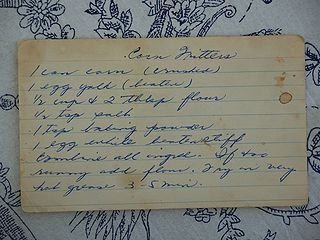 Corn Fritters
1 can corn (crushed)
1 egg yolk (beaten)
1/2 cup & 2 tbsp flour
1/2 tsp salt
1 tsp baking powder
1 egg white beaten stiff
Combine all ingred. If too
runny add flour. Fry in very
hot grease 3-5 min.